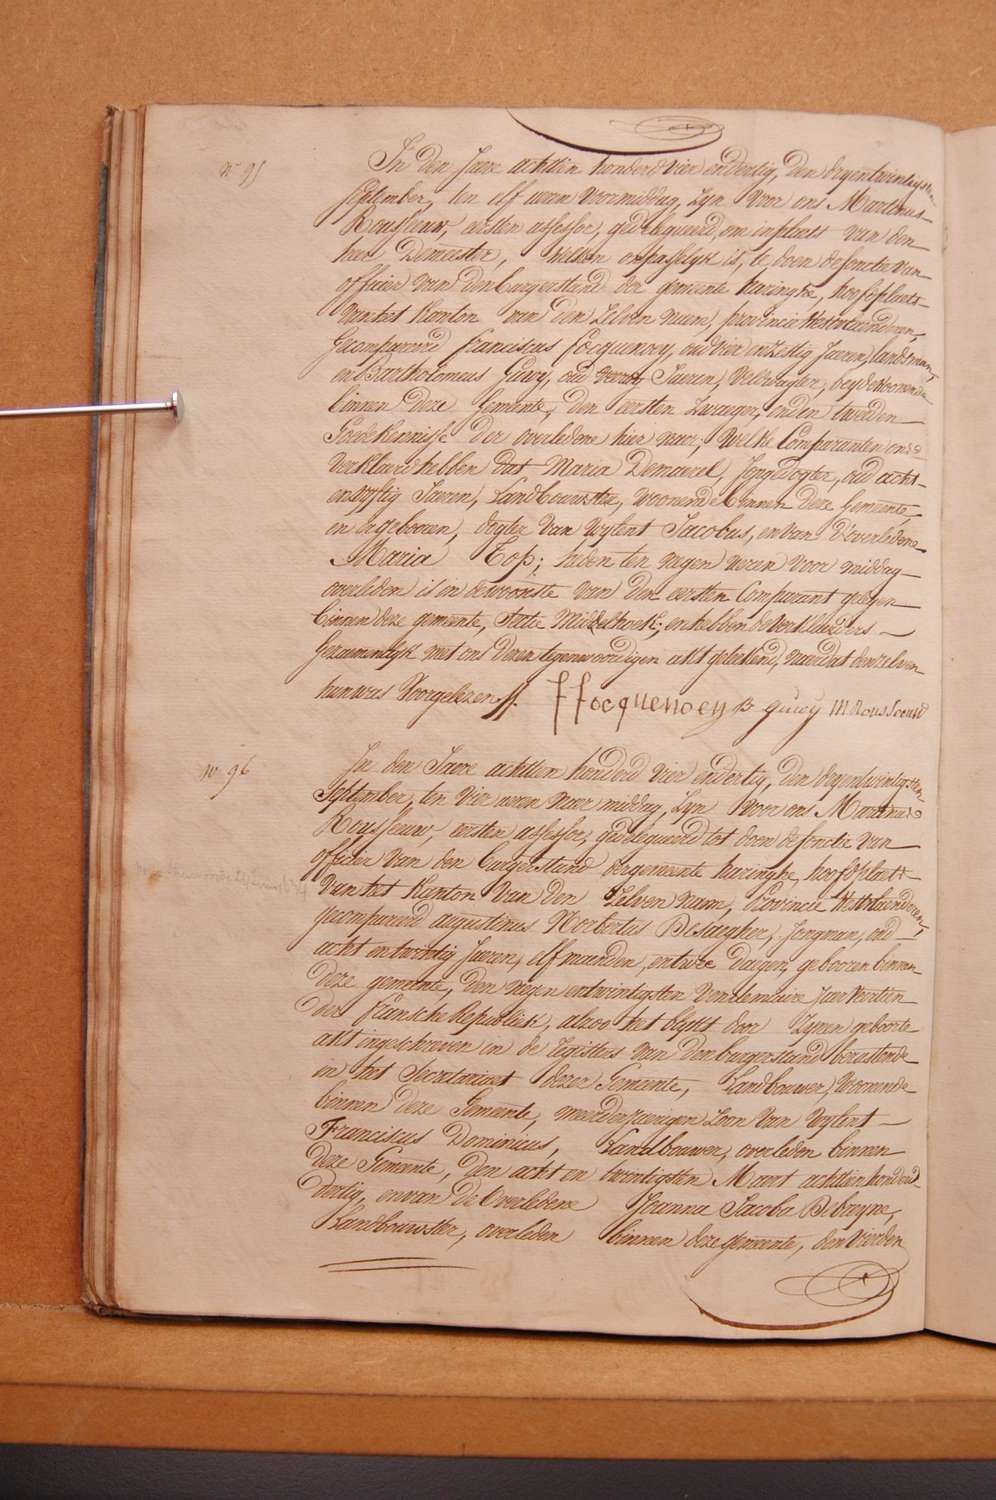 N° 95
In den Jaere achttien honderd vier en dertig, den dryentwintigsten
september, ten elf uren voormiddag, Zyn voor ons Martinus
Rousseeuw, eersten assessor, gedelegueerd, om in plaets van den
heer Demeester, welken onpasselyk is, te doen de functie van
officier van den burgerstand der gemeente haringhe, hoofdplaets
van het Kanton van den Zelven naem, provincie Westvlaenderen,
Gecompareerd franciscus focquenoey, oud vier en zestig Jaeren, landsman,
en Bartholomeus Guwy, oud Jaeren, Veldwagter, beyde woonende
binnen deze Gemeente, den eersten Zwaeger, en den tweeden
Goede Kennisse der overledene hier naer; welke Comparanten ons
verklaerd hebben dat Maria Demaerel, Jongdogter, oud acht
en vyftig Jaeren, Landbouwster, woonende binnen deze Gemeente,
en er gebooren, dogter van wylent Jacobus, en van d'overledene
Maria Top; heden ten negen uren voor middag
overleden is in de woonste van den eersten Comparant gelegen
binnen deze gemeente, Sectie Middelhoek; en hebben de verklaerders
Gezamentlyk met ons dezen tegenwoordigen akt geteekend, naer dat denzelven
hun was Voorgelezen //. f focquenoey B guwy M Rousseeuw
N° 96
In den Jaere achttien honderd vier en dertig, den dryentwintigsten
September, ten vier uren naer middag, Zyn voor ons Martinus
Rousseeuw, eersten assessor, gedelegueerd tot doen de functie van
officier van den burgerstand der gemeente haringhe, hoofdplaets
van het Kanton van den Zelven naem, Provincie Westvlaenderen,
gecompareerd augustinus Norbertus Besaegher, Jongman, oud
acht en twintig Jaeren, elf maenden, en twee daegen, gebooren binnen
deze gemeente, den negen entwintigsten vendemiaire Jaer veertien
der fransche Republiek, alzoo het blykt door Zynen geboorte
akt ingeschreven in de registers van den burgerstand berustende
in het Secretariaet dezer Gemeente, Landbouwer, woonende
binnen deze Gemeente, meerderjaerigen zoon van wylent
Franciscus Dominicus, Landbouwer, overleden binnen
deze Gemeente, den acht en twintigsten Maert achttien honderd
dertig, en van de Overledene Joanna Jacoba Debruyne,
Landbouwster, overleden binnen deze gemeente, den vierden